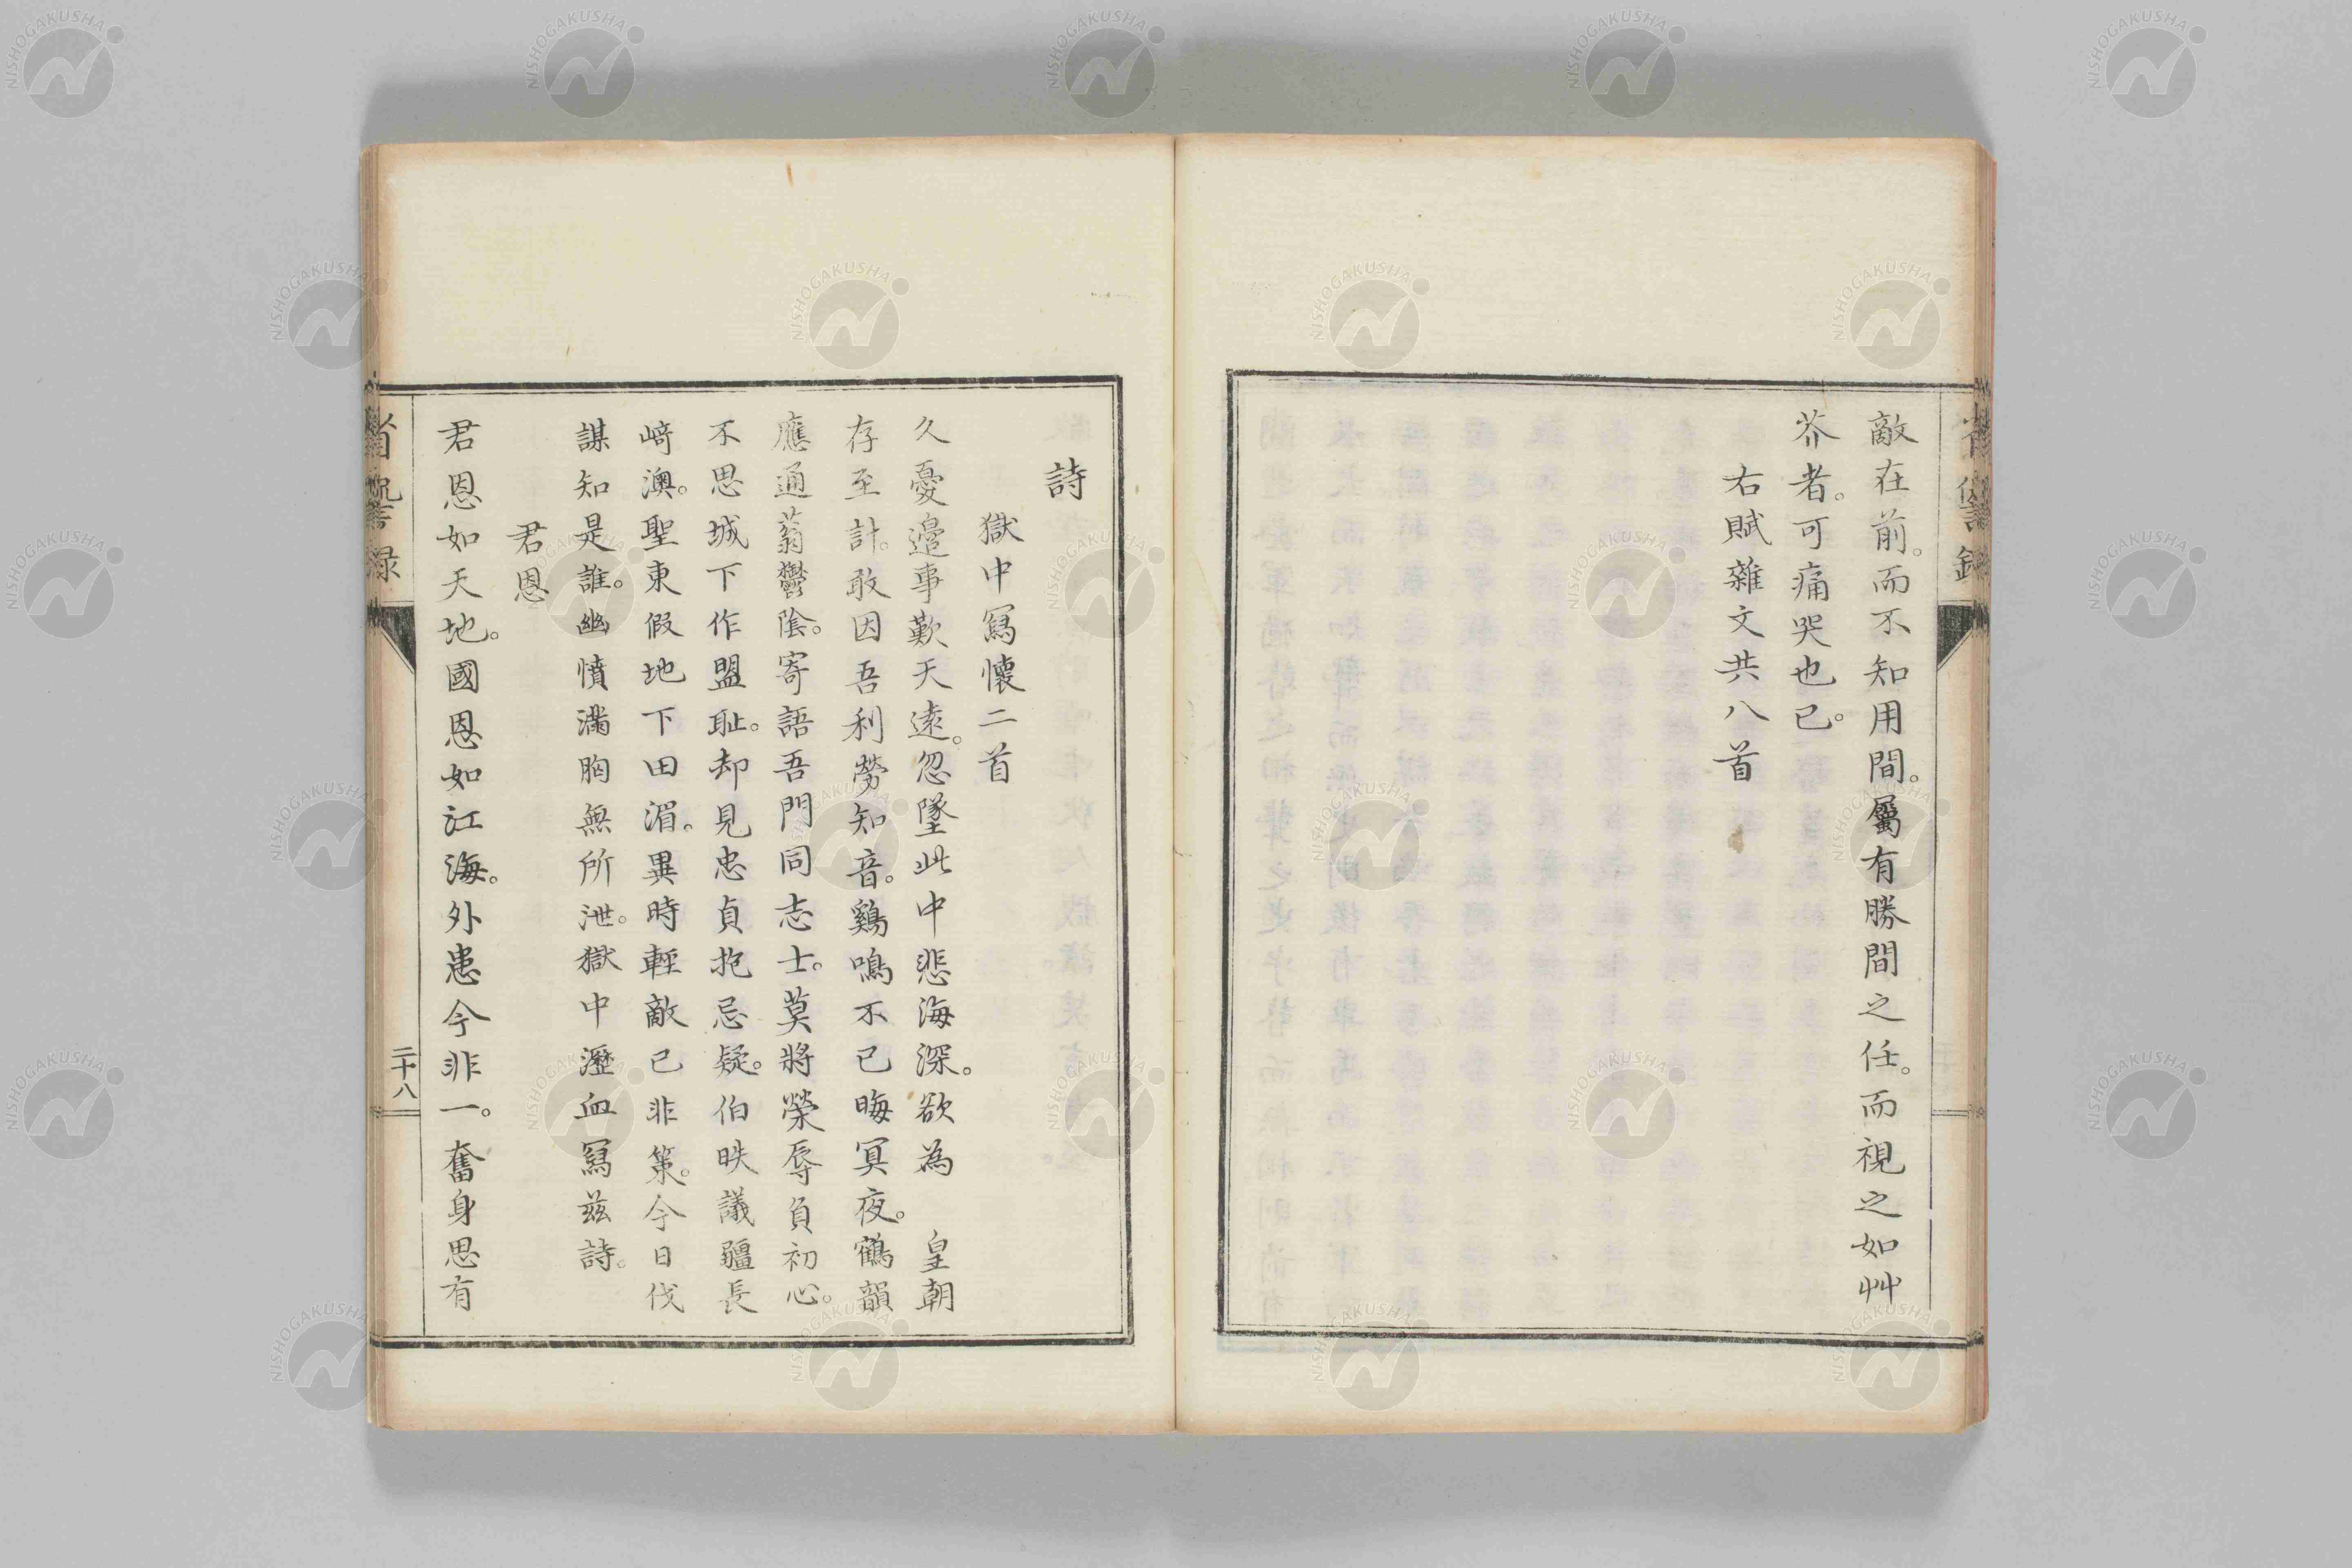 敵在前。而不知用間。屬有勝間之任。而視之如艸
芥者。可痛哭也已。
右賦雜文共八首
詩
獄中寫懷二首
久憂邊事歎天遠。忽墜此中悲海深。欲為　皇朝
存至計。敢因吾利勞知音。鷄鳴不已晦冥夜。鶴韻
應通蓊鬱陰。寄語吾門同志士。莫將榮辱負初心。
不思城下作盟耻。却見忠貞抱忌疑。伯昳議疆長
﨑澳。聖東假地下田湄。異時輕敵已非策。今日伐
謀知是誰。幽憤滿胸無所泄。獄中瀝血寫茲詩。
君恩
君恩如天地。國恩如江海。外患今非一。奮身思有
省諐録
二十八
NISHOGAKUSHA